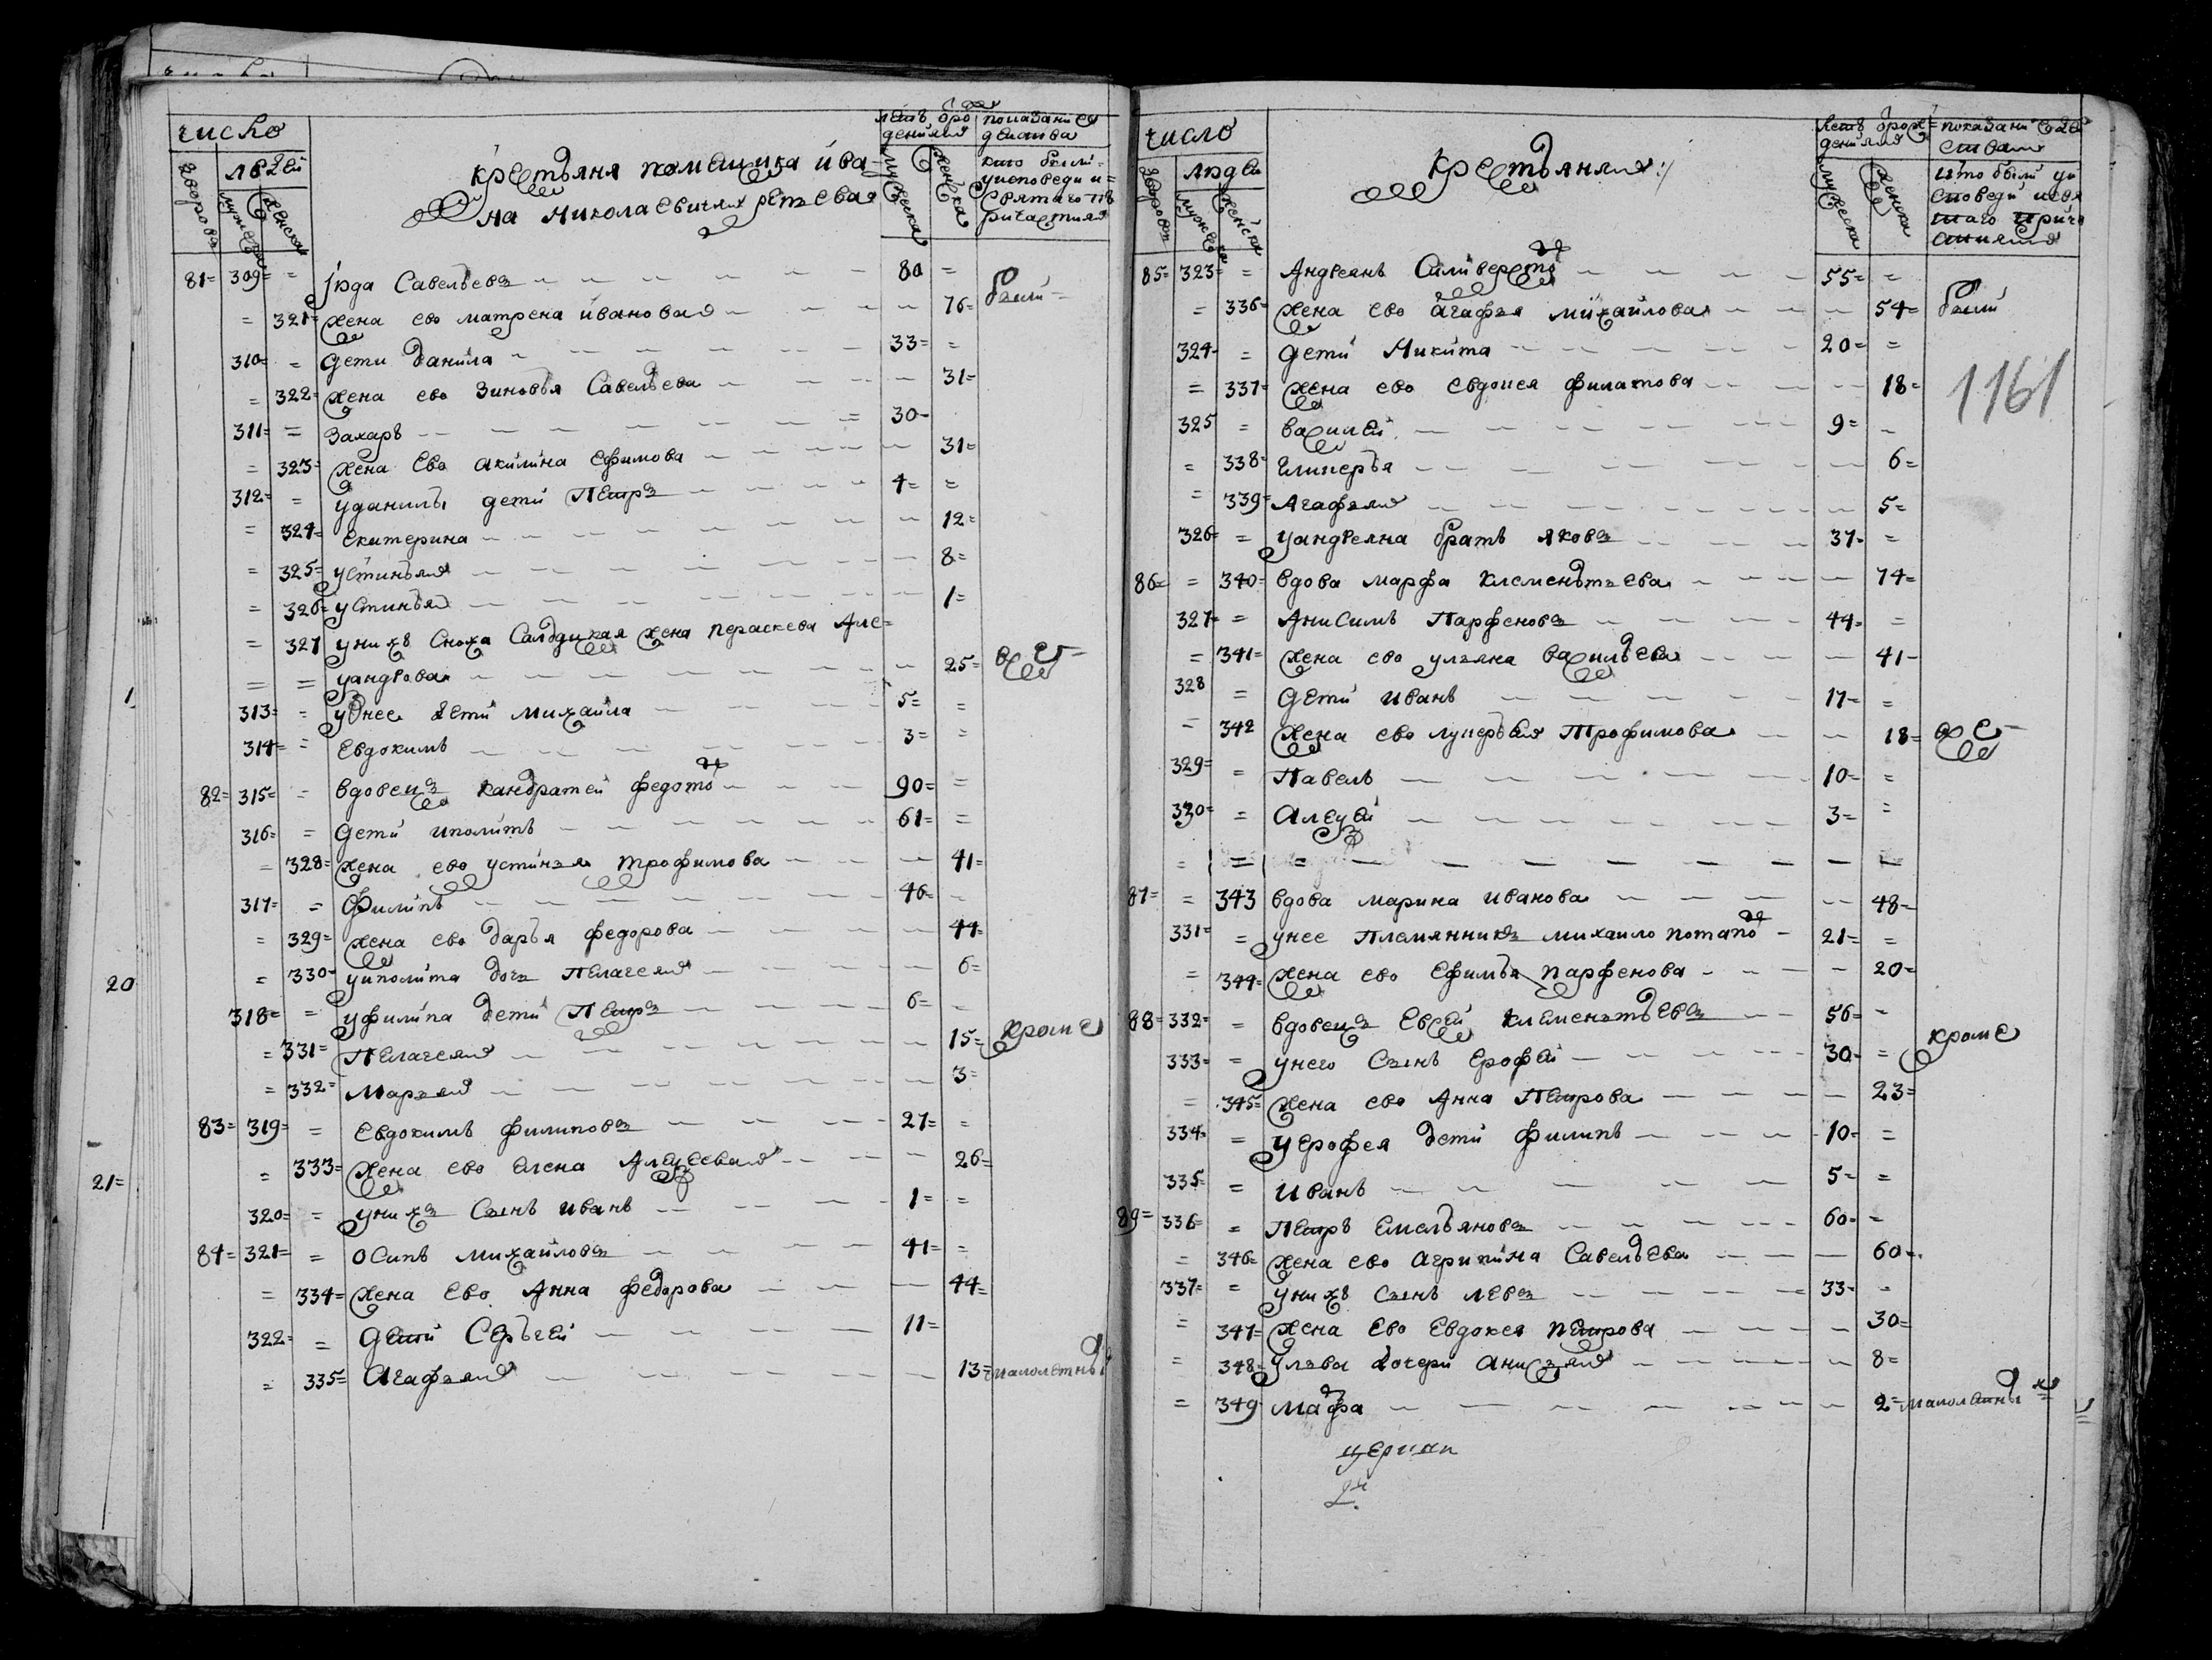 число
людей
дворовъ
мужеска
женска
крестьяня помещика ива-
на николаевичия ретзева
летъ ѿро
дения
мужеска
женска
показание
действа
кто были
уисповеди и=
святаго п
ричастия
81= 309= = Июда Савельевъ 80 =
были
= 321= жена ево матрена иванова 76=
310= = дети данила 33= =
= 322= жена ево Зиновья Савельева 31=
311= = Захаръ 30=
= 323= жена Ево акилина ефимова 31=
312= = уданилы дети Петръ 4= =
= 324= Екатерина 12=
= 325= устинья 8=
= 326= устинья 1=
= 327 унихъ Сноха Салдацкая жена пераскева Але=
= = ксандрова 25= все
313= = унее дети михаила 5= =
314= = Евдокимъ 3= =
82= 315= = вдовецъ кандратей федотовъ 90= =
316= = дети иполитъ 61= =
= 328= жена ево устинья трофимова 41=
317= = филипъ 46= =
= 329= жена ево дарья федорова 44=
= 330= уиполита дочь Пелагея 6=
318= = уфилипа дети Петръ 6= =
= 331= Пелагея 15= кроме
= 332= марья 3=
83= 319= = Евдокимъ филиповъ 27= =
= 333= жена ево елена Алексеева 26=
320= = унихъ Сынъ иванъ 1= =
84= 321= = Осипъ михайловъ 41= =
= 334= жена Ево Анна федорова 44=
322= = дети Сергей 11=
= 335= Агафья 13= малолетныхъ
1
20
21=
число
людей
дворовъ
мужеска
женска
крестьяния
летъ ѿрож
дения
мужеска
женска
показание дей
ства
кто были уи
споведи исвя
таго прича
стия
85= 323= = Андреянъ Силиверстовъ 55= =
= 336= жена ево агафья михаилова 54= были
324= = дети Никита 20= =
= 337= жена ево евдокея филатова 18=
1161
325 = василей 9= =
= 338= гликерья 6=
= 339= Агафья 5=
326= = уандреяна братъ яковъ 37= =
86= = 340= вдова марфа клементьева 74=
327= = Анисимъ Парфеновъ 44= =
= 341= жена ево ульяна васильева 41=
328 = дети иванъ 17= =
= 342 жена ево лукерья Трофимова 18= все
329= = Павелъ 10= =
330= = Алексей 3= =
87= = 343 вдова марина иванова 48=
331= = унее Племянникъ михаило потаповъ 21= =
= 344= жена ево Ефимья парфенова 20=
88= 332= = вдовецъ Евсей клементьевъ 56= =
кроме
333= = унего Сынъ ерофей 30= =
= 345= жена ево Анна Петрова 23=
334= = уерофея дети филипъ 10= =
335= = иванъ 5= =
89= 336= = Петръ Емельяновъ 60= =
= 346= жена ево агрипина Савельева 60=
337= = унихъ сынъ левъ 33= =
= 347= жена Ево Евдокея петрова 30=
= 348= ульва дочери анисья 8=
= 349 марфа 2= малолетныхъ